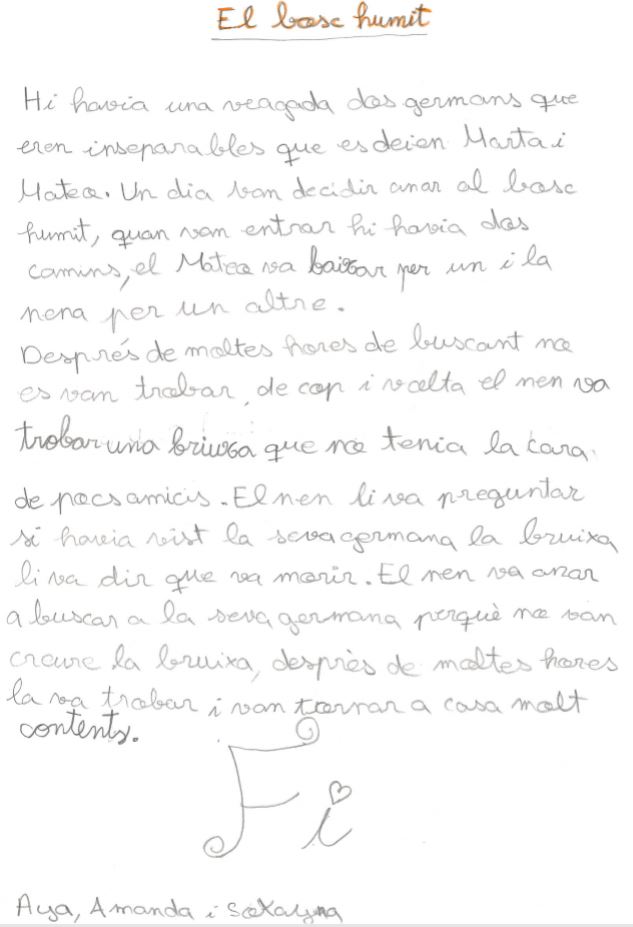 El bosc humit
Hi havia una veagada dos germans que
eren inseparables que es deien Marta i
Mateo. Un dia van decidir anar al bosc
humit, quan van entrar hi havia dos
camins, el Mateo va baixar per un i la
nena per un altre.
Després de moltes hores de buscant no
es van trobar, de cop i volta el nen va
trobar una bruixa que no tenia la cara
de pocs amicis. El nen li va preguntar
si havia vist la seva germana la bruixa
li va dir que va morir. El nen va anar
a buscar a la seva germana perquè no van
creure la bruixa, desprès de moltes hores
la va trobar i van tornar a casa molt
contents.
Fi
Aya, Amanda i